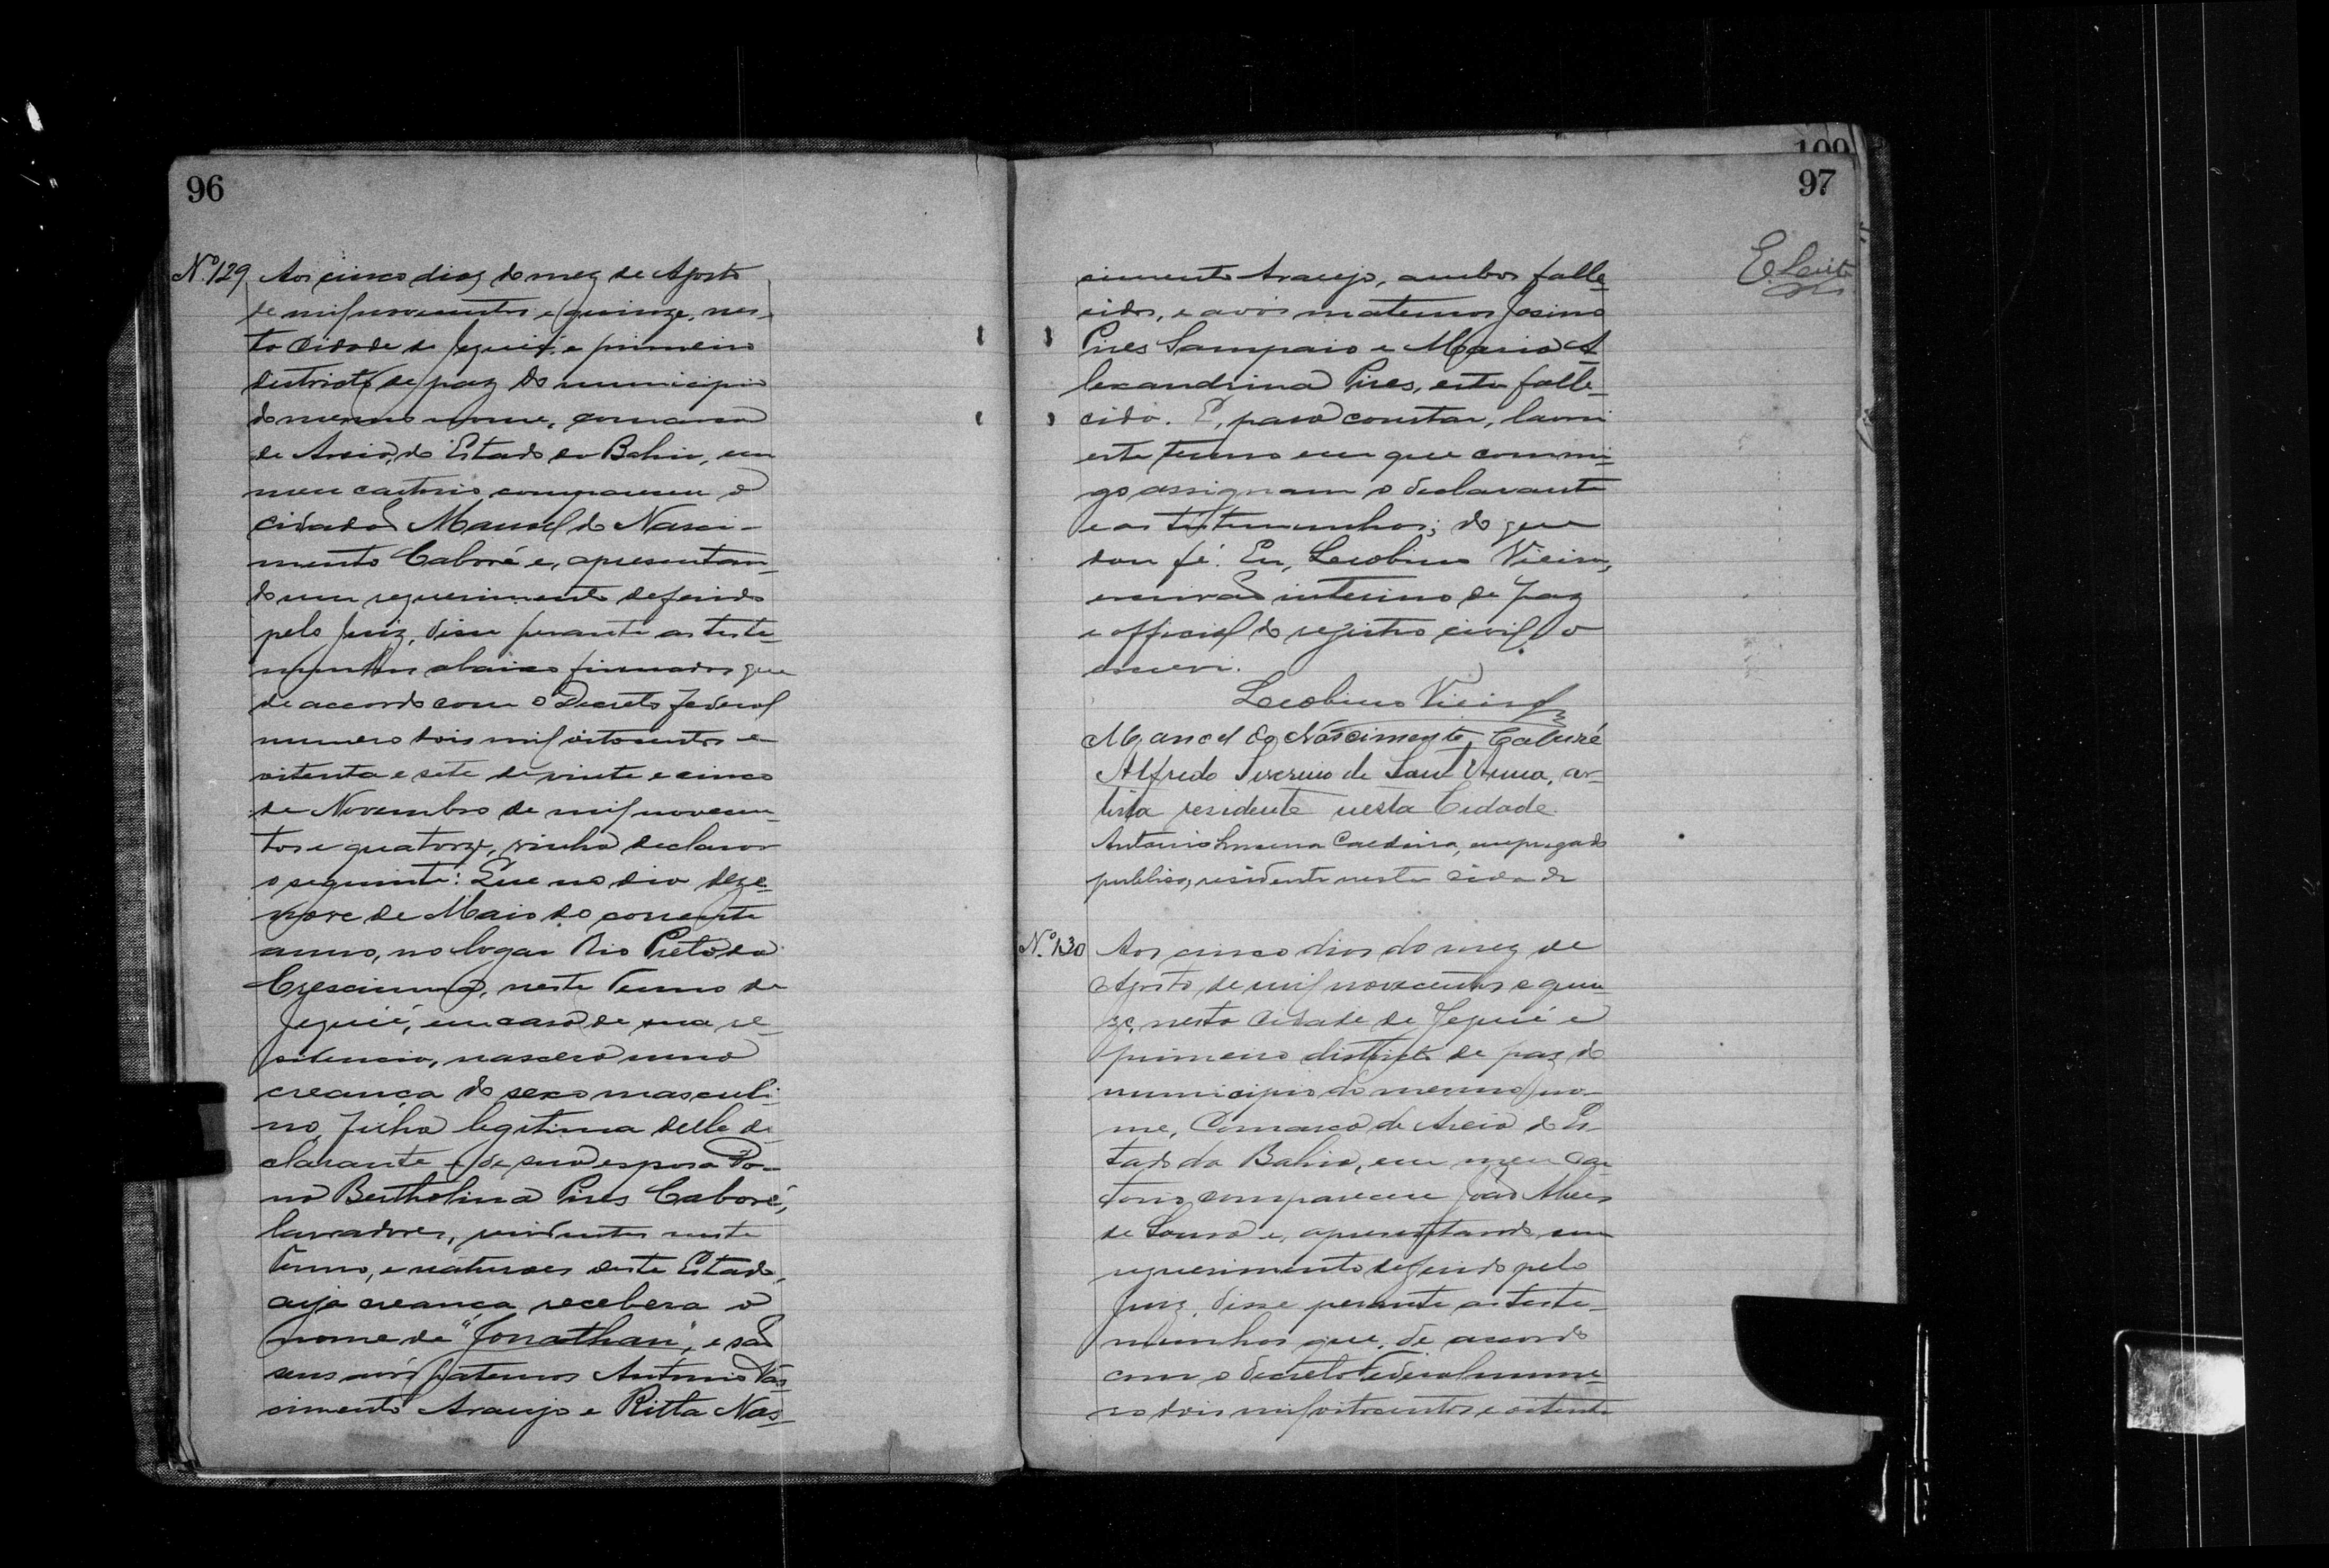 96
Nº 129 Aos cinco dias do mez de Agosto
de mil novecentos e quinze, nes-
ta Cidade de Jequié, e primeiro
districto de paz do municipio
do mesmo nome, comarca
de Areia, do Estado da Bahia, em
meu cartorio compareceu o
cidadão Manoel do Nasci-
mento Caboré e, apresentan-
do um requerimento deferido
pelo Juiz, disse perante as teste-
munhas abaixo firmados que
de accordo com o Decreto federal
numero dois mil oitocentos e
oitenta e sete de vinte e cinco
de Novembro de mil novecen-
tos e quatorze, vinha declarar
o seguinte: Que no dia deze-
nove de Maio do corrente
anno, no logar Rio Preto da
Cresciuma, neste Termo de
Jequié, em casa de sua re-
sidencia, nascera uma
creança do sexo masculi-
no, filha legitima delle de-
clarante e de sua esposa Do-
na Bertholina Pires Caboré,
lavradores, residentes neste
Termo, e naturaes deste Estado,
cuja creança recebera o
nome de "Jonathan", e são
seus avós paternos Antonio Nas-
cimento Araujo e Ritta Nas-
100
97
E. Leite
cimento Araujo, ambos falle-
cidos, e avós maternos Josino
Pires Sampaio e Maria A-
lexandrina Pires, esta falle-
cida. E, para constar, lavrei
este termo em que commi-
go assignam o declarante
e as testemunhas; do que
dou fé. Eu, Leobino Vieira,
escrivão interino de Paz
e official do registro civil o
escrevi.
Leobino Vieira
Manoel do Nascimento Caburé
Alfredo Severino de Sant'Anna, ar-
tista residente nesta Cidade
Antonio Caldeira, empregado
publico, residente nesta cidade
Nº 130 Aos cinco dias do mez de
Agosto, de mil novecentos e quin-
ze, nesta Cidade de Jequié e
primeiro districto de paz do
municipio do mesmo no-
me, Comarca de Areia do Es-
tado da Bahia, em meu Car-
torio compareceu João Alves
de Souza e, apresentando um
requerimento deferido pelo
Juiz, disse perante as teste-
munhas que, de accordo
com o decreto federal nume-
ro dois mil oitocentos e oitenta